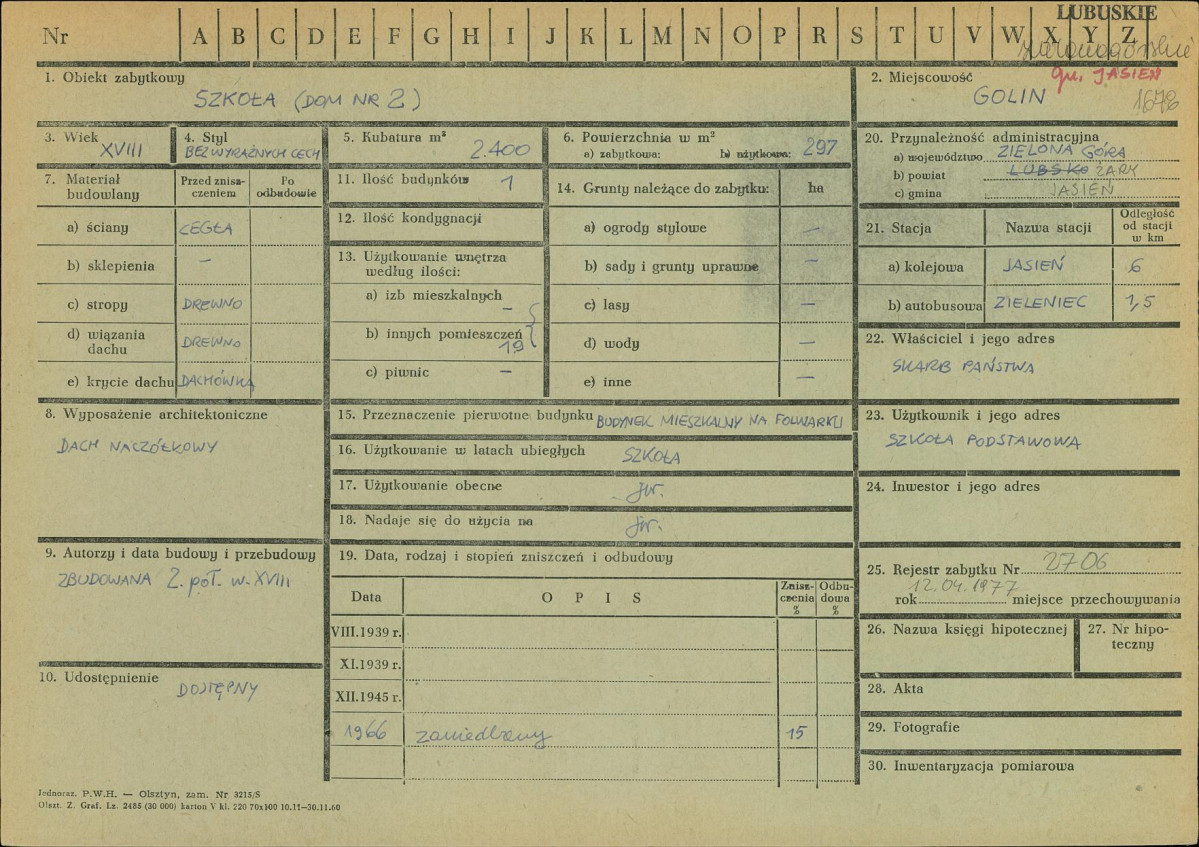 LUBUSKIE
Nr A B C D E F G H I J K L M N O P R S T U V W X Y Z
zielonogórskie
1. Obiekt zabytkowy
SZKOŁA (DOM NR 2)
2. Miejscowość
gm. JASIEŃ
GOLIN
1678
3. Wiek
XVIII
4. Styl
BEZ WYRAŹNYCH CECH
5. Kubatura m³
2.400
6. Powierzchnia w m²
a) zabytkowa: b) użytkowa: 297
20. Przynależność administracyjna
a) województwo ZIELONA GÓRA
b) powiat LUBSKO ŻARY
c) gmina JASIEŃ
7. Materiał budowlany
Przed znisz-
czeniem
Po
odbudowie
a) ściany CEGŁA
b) sklepienia –
c) stropy DREWNO
d) wiązania
dachu DREWNO
e) krycie dachu DACHÓWKA
11. Ilość budynków 1
12. Ilość kondygnacji
13. Użytkowanie wnętrza
według ilości:
a) izb mieszkalnych –
b) innych pomieszczeń
19
c) piwnic –
14. Grunty należące do zabytku: ha
a) ogrody stylowe –
b) sady i grunty uprawne –
c) lasy –
d) wody –
e) inne –
21. Stacja Nazwa stacji
Odległość
od stacji
w km
a) kolejowa JASIEŃ 6
b) autobusowa ZIELENIEC 1,5
22. Właściciel i jego adres
SKARB PAŃSTWA
8. Wyposażenie architektoniczne
DACH NACZÓŁKOWY
15. Przeznaczenie pierwotne budynku BUDYNEK MIESZKALNY NA FOLWARKU
16. Użytkowanie w latach ubiegłych SZKOŁA
17. Użytkowanie obecne jw.
18. Nadaje się do użycia na jw.
23. Użytkownik i jego adres
SZKOŁA PODSTAWOWA
24. Inwestor i jego adres
9. Autorzy i data budowy i przebudowy
ZBUDOWANA 2. poł. w. XVIII
10. Udostępnienie
DOSTĘPNY
19. Data, rodzaj i stopień zniszczeń i odbudowy
Data O P I S
Znisz-
czenia
%
Odbu-
dowa
%
VIII.1939 r.
XI.1939 r.
XII.1945 r.
1966 zaniedbany 15
25. Rejestr zabytku Nr 2706
12.04.1977
rok miejsce przechowywania
26. Nazwa księgi hipotecznej
27. Nr hipo-
teczny
28. Akta
29. Fotografie
30. Inwentaryzacja pomiarowa
Jednoraz. P.W.H. — Olsztyn, zam. Nr 3215/S
Olszt. Z. Graf. Lz. 2485 (30 000) karton V kl. 220 70x100 10.11—30.11.60